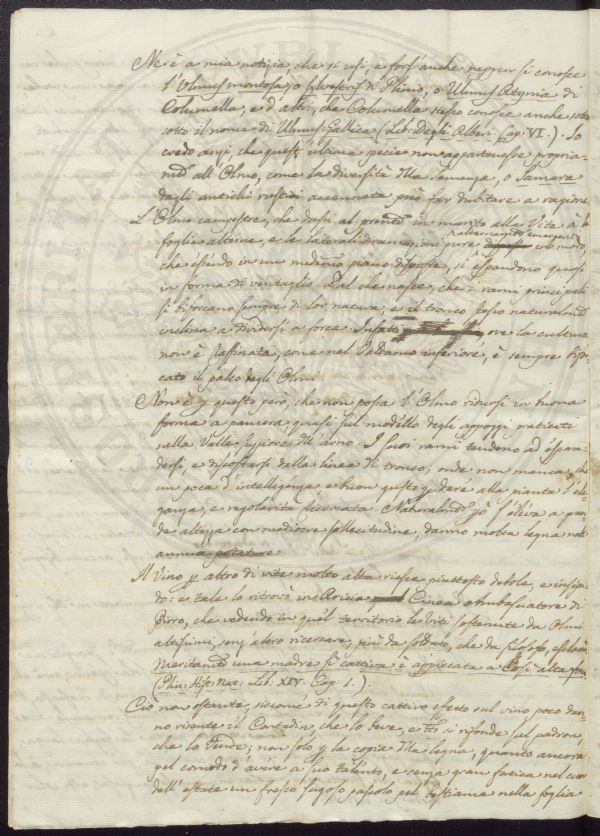 Nè è a mia notizia che si usi, e fors'anche neppur si conosce
l'Ulmus montosa, o silvestris di Plinio, o Ulmus Atynia di
Columella, e d'altri, che Columella stesso conosce anche sotto
sotto il nome di Ulmus Gallica (Lib. Degli Alberi Cap. VI.). Io
credo anzi, che quest'ultima specie non appartenesse propria-
mte all'Olmo, come la diversità della semenza, o Samara
dagli antichi rustici accennata può far dubitare a ragione
L'Olmo campestre, che dassi al presente in marito alla Vite à le
foglie alterne, e le laterali diramazioni pure alternando emergenti in modo,
che essendo in un medesimo piano disposte, si espandono quasi
in forma di ventaglio. Dal che nasce, che i rami principali
si biforcano sempre di lor natura, e il tronco stesso naturalmte
inclina a dividersi a forca. Infatti ove la cultura
non è raffinata, come nel Valdarno inferiore, è sempre bifor-
cato il palco degli Olmi.
Non è p questo però, che non possa l'Olmo ridursi in buona
forma a paniera quasi sul modello degli appoggi praticati
nella Valle superiore dell'Arno. I suoi rami tendono ad espan-
dersi, e discostarsi dalla linea del tronco; onde non manca che
un poca d'intelligenza e buon gusto p dare alla pianta l'ele-
ganza, e regolarità ricercata. Naturalmte poi s'eleva a gran-
de altezza con mediocre sollecitudine, danno molta legna nell'
annua potatura
Il Vino p altro di vite molto alta riesce piuttosto debole, e insipi-
do: e tale lo ritrovò in Aricia Cinea Ambasciatore di
Pirro, che vedendo in quel territorio le Viti sostenute da Olmi
altissimi, senz'altro ricercare, più da soldato, che da filosofo, esclamò
Meritamte una madre sì cattiva è appiccata a così alta forca
(Plin: Hist: Nat: Lib: XIV. Cap: 1.).
Ciò non ostante, siccome di questo cattivo effetto sul vino poco dan-
no risente il Contadin, che lo beve, e si rifonde sul padron,
che lo vende; non solo p la copia della legna, quanto ancora
pel comodo d'avere a suo talento, e senza gran fatica nel cuor
dell'estate un fresco sugoso pascolo pel bestiame nella foglia